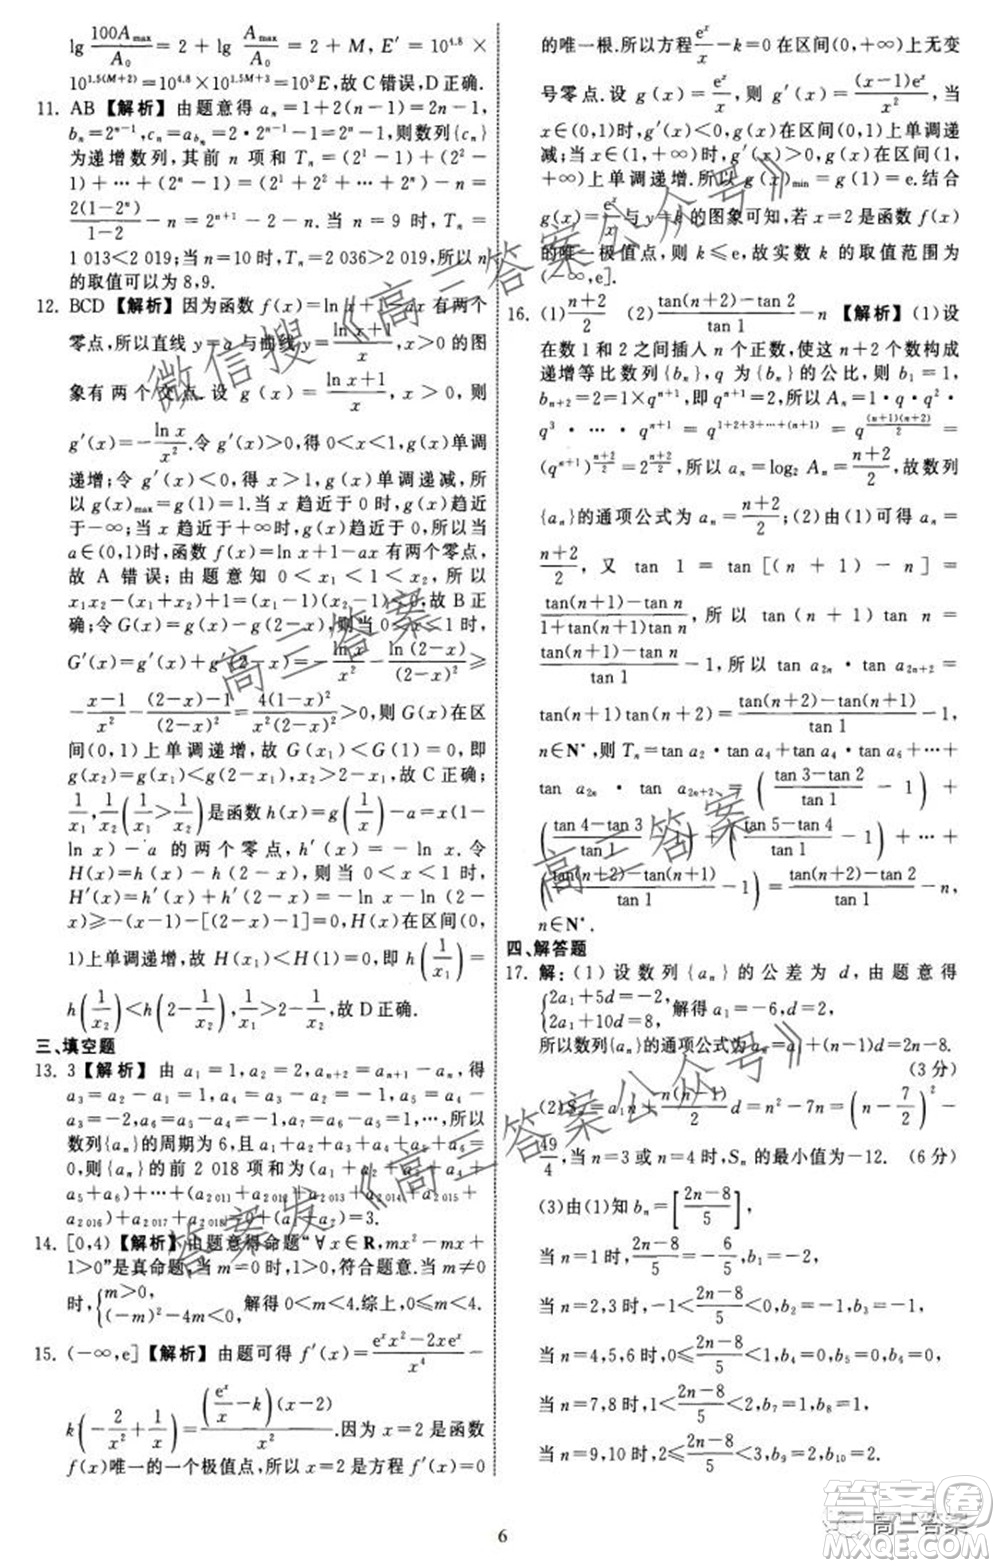 lg 100A_max/A_0 = 2 + lg A_max/A_0 = 2 + M, E′ = 10^4.8 ×
10^1.5(M+2) = 10^4.8 × 10^1.5M+3 = 10^3 E, 故 C 错误, D 正确.
11. AB 【解析】 由题意得 a_n=1+2(n-1)=2n-1,
b_n=2^(n-1), c_n=a_(b_n)=2·2^(n-1)-1=2^n-1, 则数列{c_n}
为递增数列, 其前 n 项和 T_n=(2^1-1)+(2^2-
1)+(2^3-1)+…+(2^n-1)=(2^1+2^2+…+2^n)-n=
2(1-2^n)/(1-2) - n = 2^(n+1) - 2 - n. 当 n = 9 时, T_n =
1 013<2 019; 当 n=10 时, T_n=2 036>2 019, 所以 n
的取值可以为 8,9.
12. BCD 【解析】 因为函数 f(x)=ln x+1-ax 有两个
零点, 所以直线 y=a 与曲线 y=(ln x+1)/x 的图
象有两个交点. 设 g(x)=(ln x+1)/x, 则
g′(x)=-ln x/x^2. 令 g′(x)>0, 得 0<x<1, g(x)单调
递增; 令 g′(x)<0, 得 x>1, g(x)单调递减, 所
以 g(x)_max=g(1)=1. 当 x 趋近于 0 时, g(x)趋近
于-∞; 当 x 趋近于+∞时, g(x)趋近于 0, 所以当
a∈(0,1)时, 函数 f(x)=ln x+1-ax 有两个零点,
故 A 错误; 由题意知 0<x_1<1<x_2, 所以
x_1x_2-x_1-x_2<x_1x_2-x_2=x_2(x_1-1)<0, 故 B 正
确; 令 G(x)=g(x)-g(2-x), 则当 0<x<1 时,
G′(x)=g′(x)+g′(2-x)=-ln x/x^2-ln (2-x)/(2-x)^2≥
-(x-1)/x^2-(1-x)/(2-x)^2=4(1-x)^2/(x^2(2-x)^2)>0, 所以 G(x)在区
间(0,1)上单调递增, 故 G(x_1)<G(1)=0, 即
g(x_2)=g(x_1)<g(2-x_1), 所以 x_1+x_2>2, 故 C 正确;
1/x_1, 1/x_2(1/x_1>1/x_2)是函数 h(x)=g(1/x)-a=x(1-
ln x)-a 的两个零点, h′(x)=-ln x. 令
H(x)=h(x)-h(2-x), 则当 0<x<1 时,
H′(x)=h′(x)+h′(2-x)=-ln x-ln(2-
x)≥-(x-1)-[(2-x)-1]=0, 所以 H(x)在区间(0,
1)上单调递增, 所以 H(x_1)<H(1)=0, 即 h(1/x_1)=
h(1/x_2)<h(2-1/x_2), 1/x_1>2-1/x_2, 故 D 正确.
三、填空题
13. 3 【解析】 由 a_1=1, a_2=2, a_(n+2)=a_(n+1)-a_n, 得
a_3=a_2-a_1=1, a_4=a_3-a_2=-1, a_5=a_4-
a_3=-2, a_6=a_5-a_4=-1, a_7=a_6-a_5=1,…, 所以
数列{a_n}的周期为 6, 且 a_1+a_2+a_3+a_4+a_5+a_6=
0, 则数列{a_n}的前 2 018 项和为(a_1+a_2+a_3+a_4+
a_5+a_6)+…+(a_2 011+a_2 012+a_2 013+a_2 014+a_2 015+
a_2 016)+(a_2 017+a_2 018)=a_1+a_2=3.
14. [0,4) 【解析】 由题意得命题“∀x∈R, mx^2-mx+
1>0”是真命题, 当 m=0 时, 1>0, 符合题意. 当 m≠0
时, {m>0, (-m)^2-4m<0, 解得 0<m<4. 综上, 0≤m<4.
15. (-∞,e] 【解析】 由题可得 f′(x)=(e^x x^2-2xe^x)/x^4 -
k(-2/x^2+1/x)=(e^x/x-k)(x-2)/x^2. 因为 x=2 是函数
f(x)唯一的一个极值点, 所以 x=2 是方程 f′(x)=0
的唯一根. 所以方程 e^x/x-k=0 在区间(0,+∞)上无变
号零点. 设 g(x)=e^x/x, 则 g′(x)=(x-1)e^x/x^2. 当
x∈(0,1)时, g′(x)<0, g(x)在区间(0,1)上单调递
减; 当 x∈(1,+∞)时, g′(x)>0, g(x)在区间(1,
+∞)上单调递增. 所以 g(x)_min=g(1)=e. 结合
g(x)=e^x/x 与 y=k 的图象可知, 若 x=2 是函数 f(x)
的唯一极值点, 则 k≤e, 故实数 k 的取值范围为
(-∞,e].
16. (1)(n+2)/2 (2)(tan(n+2)-tan 2)/tan 1 - n 【解析】 (1)设
在数 1 和 2 之间插入 n 个正数, 使这 n+2 个数构成
递增等比数列{b_n}, q 为{b_n}的公比, 则 b_1=1,
b_(n+2)=2=1×q^(n+1), 即 q^(n+1)=2, 所以 A_n=1·q·q^2·
q^3·…·q^n·q^(n+1)=q^(1+2+3+…+(n+1))=q^((n+1)(n+2)/2)=
(q^(n+1))^((n+2)/2)=2^((n+2)/2), 所以 a_n=log_2 A_n=(n+2)/2, 故数列
{a_n}的通项公式为 a_n=(n+2)/2; (2)由(1)可得 a_n=
(n+2)/2, 又 tan 1 = tan [(n+1)-n] =
(tan(n+1)-tan n)/(1+tan(n+1)tan n), 所以 tan(n+1)tan n=
(tan(n+1)-tan n)/tan 1 - 1, 所以 tan a_2n·tan a_(2n+2)=
tan(n+1)tan(n+2)=(tan(n+2)-tan(n+1))/tan1-1,
n∈N*, 则 T_n=tan a_2·tan a_4+tan a_4·tan a_6+…+
tan a_2n·tan a_(2n+2)=((tan 3-tan 2)/tan1-1)+
((tan 4-tan 3)/tan1-1)+((tan 5-tan 4)/tan 1-1)+…+
((tan(n+2)-tan(n+1))/tan1-1)=(tan(n+2)-tan 2)/tan 1-n,
n∈N*.
四、解答题
17. 解: (1) 设数列{a_n}的公差为 d, 由题意得
{2a_1+5d=-2, 2a_1+10d=8, 解得 a_1=-6, d=2.
所以数列{a_n}的通项公式为 a_n=a_1+(n-1)d=2n-8.
(3 分)
(2)S_n=a_1n+n(n-1)/2 d=n^2-7n=(n-7/2)^2-
49/4, 当 n=3 或 n=4 时, S_n 的最小值为-12. (6 分)
(3)由(1)知 b_n=[(2n-8)/5],
当 n=1 时, -2<(2n-8)/5<-1, b_1=-2,
当 n=2,3 时, -1<(2n-8)/5<0, b_2=-1, b_3=-1,
当 n=4,5,6 时, 0≤(2n-8)/5<1, b_4=b_5=b_6=0,
当 n=7,8 时, 1≤(2n-8)/5<2, b_7=1, b_8=1,
当 n=9,10 时, 2≤(2n-8)/5<3, b_9=2, b_10=2.
6
微信搜《高三答案公众号》
高三答案
高三答案
答案发《高三答案公众号》
高三答案
答案圈
MXQE.COM